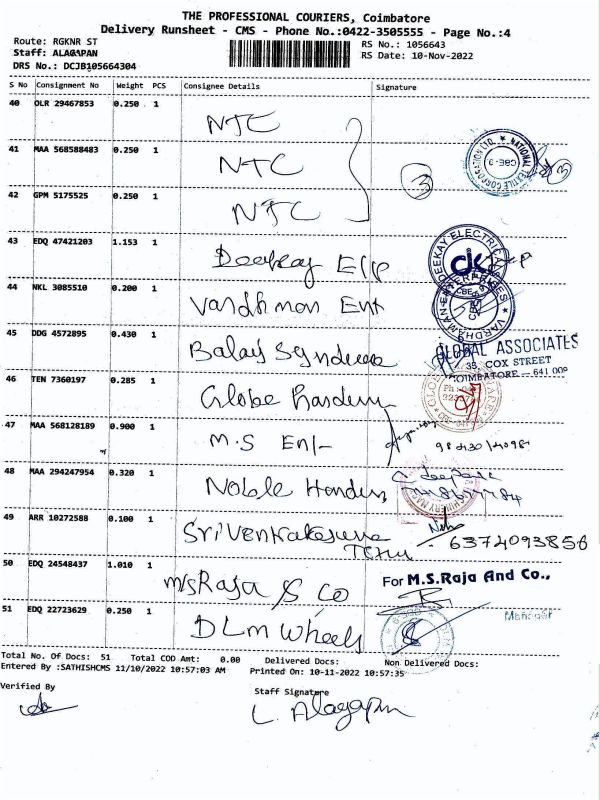 THE PROFESSIONAL COURIERS, Coimbatore
Delivery Runsheet - CMS - Phone No.:0422-3505555 - Page No.:4
Route: RGKNR ST
Staff: ALAGAPAN
DRS No.: DCJB105664304
RS No.: 1056643
RS Date: 10-Nov-2022
S No Consignment No Weight PCS Consignee Details Signature
40 OLR 29467853 0.250 1 NTC
41 MAA 568588483 0.250 1 NTC 3
NATIONAL TEXTILE CORPORATION LTD. CBE-9
42 GPM 5175525 0.250 1 NTC
43 EDQ 47421203 1.153 1 Deekay E/p
DEEKAY ELECTRICAL
44 NKL 3085510 0.200 1 Vardhman Ent
VARDHAMAN ENTERPRISES CBE
45 DDG 4572895 0.430 1 Balaji
GLOBAL ASSOCIATES
35, COX STREET
COIMBATORE - 641 00
46 TEN 7360197 0.285 1 Globe
47 MAA 568128189 0.900 1 M.S En/-
48 MAA 294247954 0.320 1 Noble
49 ARR 10272588 0.100 1 Sri Venkateswara
6374093856
50 EDQ 24548437 1.010 1 M/s Raja & Co
For M.S.Raja And Co.,
51 EDQ 22723629 0.250 1 DLM Wheels
Manager
Total No. Of Docs: 51 Total COD Amt: 0.00 Delivered Docs: Non Delivered Docs:
Entered By :SATHISHCMS 11/10/2022 10:57:03 AM Printed On: 10-11-2022 10:57:35
Verified By Staff Signature
L. Alagapan